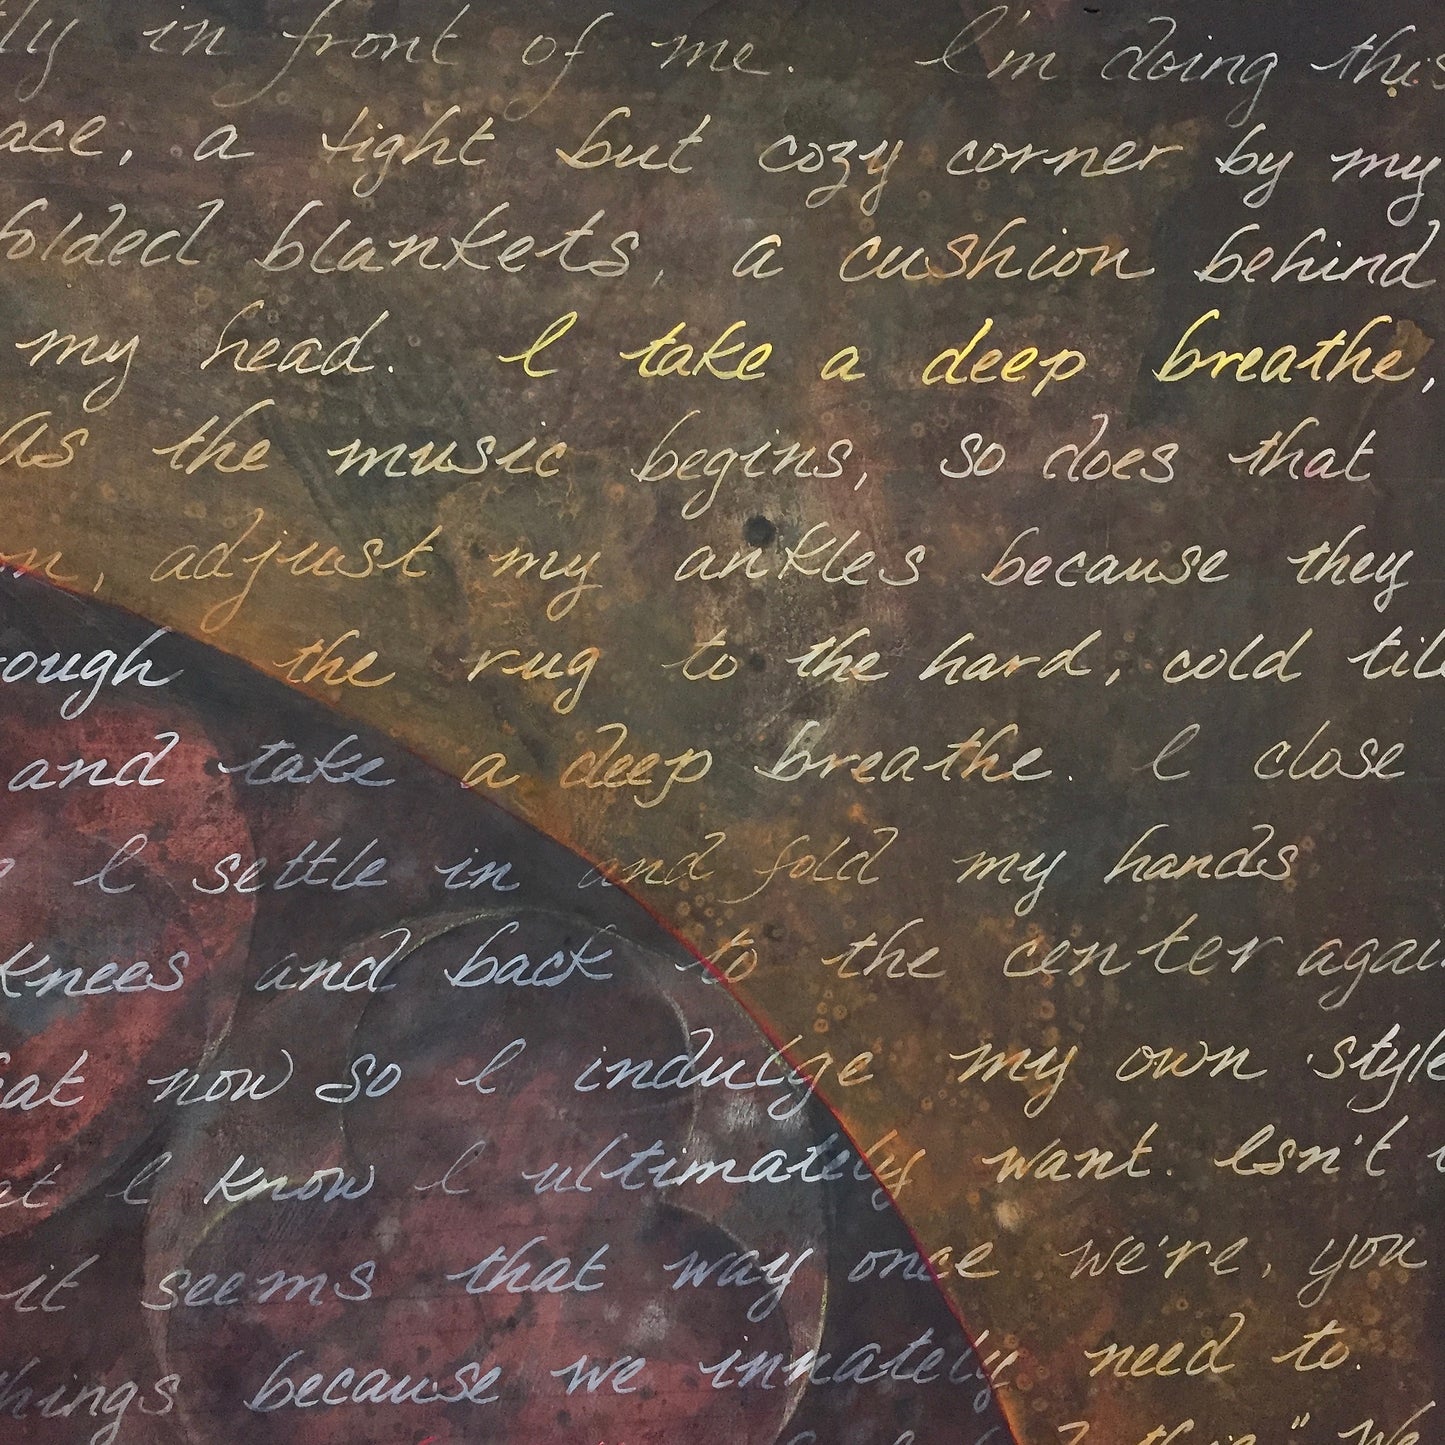 ly in front of me. I'm doing this
ace, a tight but cozy corner by my
folded blankets, a cushion behind
my head. I take a deep breathe,
As the music begins, so does that
n, adjust my ankles because they
ough the rug to the hard, cold til
and take a deep breathe. I close
I settle in and fold my hands
knees and back to the center agai
at now so I indulge my own style
et I know I ultimately want. Isn't
it seems that way once we're, you
things because we innately need to.
this" We